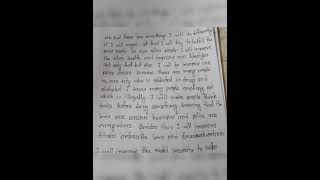 are but there are somethings I will do differently
if I will mayor. at first I will try to build the
more
for our cities people I will improve
the cities health and improve our lifestyles
not only that but also I will be improve our
police forces because there are many people
in our city who is addicted in drugs and
alchohol I know many people smoking pot
which is illegally. I will make people think
twice before doing something knowing that the
laws are serious business and police are
everywhere. Besides this I will improve
fitness
I will improve the road security to